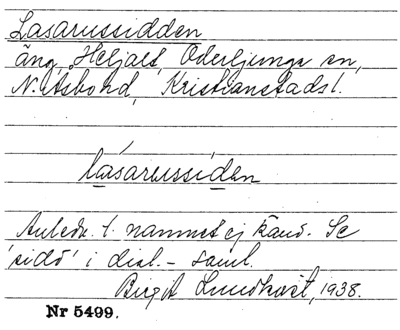 Lasarussidden
äng, Heljalt, Oderljunga sn,
N. Åsbo hd, Kristianstads l.
lásarussiden
Anledn. t. namnet ej känd. Se
'sidd' i dial.- saml.
Birgit Lundkvist, 1938.
Nr 5499.